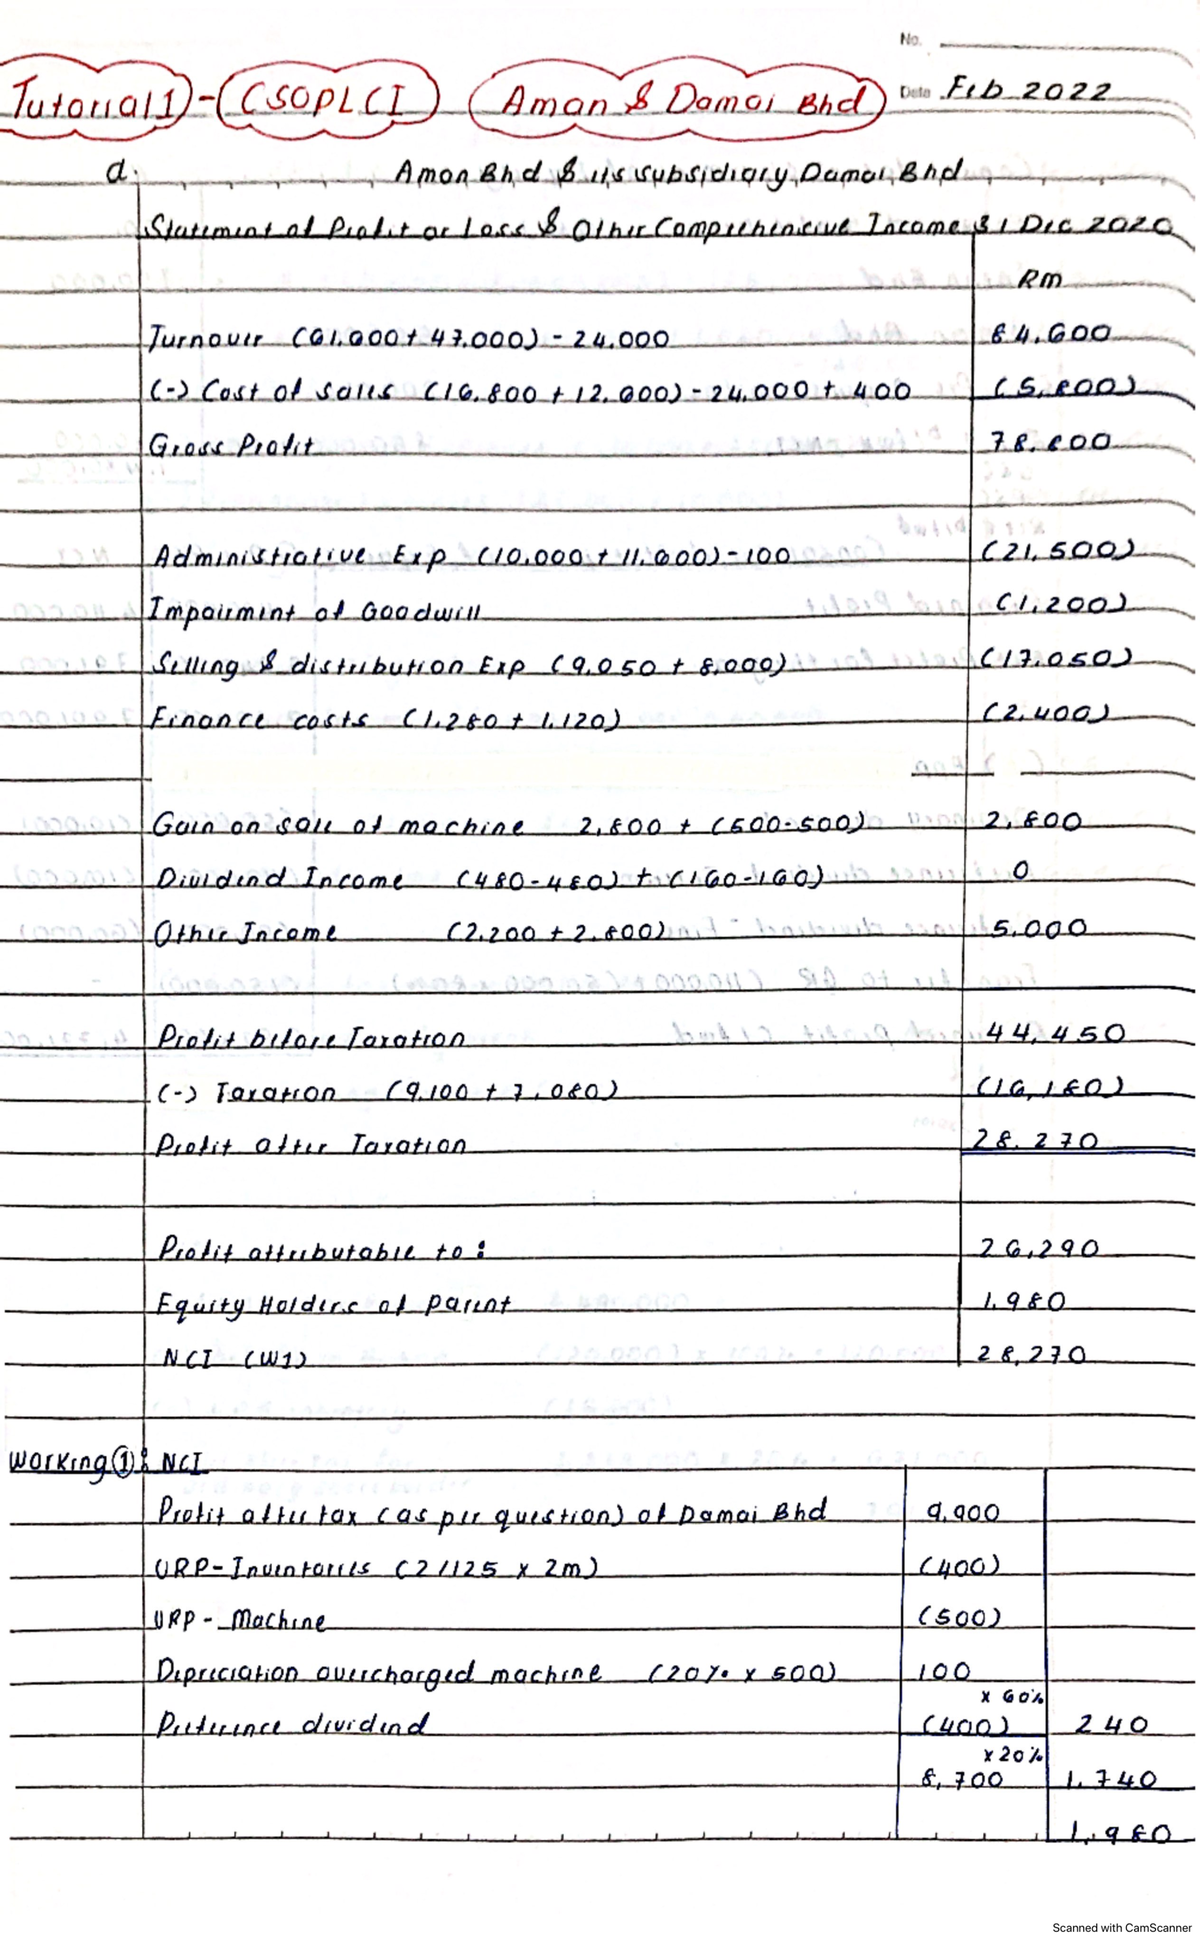 No.
Tutorial 1 - CSOPLCI Aman & Damai Bhd Date Feb 2022
a. Aman Bhd & its subsidiary, Damai Bhd
Statement of Profit or Loss & Other Comprehensive Income 31 Dec 2020
Rm
Turnover (61,600 + 47,000) - 24,000 84,600
(-) Cost of sales (16,800 + 12,600) - 24,000 + 400 (5,800)
Gross Profit 78,800
Administrative Exp (10,000 + 11,600) - 100 (21,500)
Impairment of Goodwill (1,200)
Selling & distribution Exp (9,050 + 8,000) (17,050)
Finance costs (1,280 + 1,120) (2,400)
Gain on sale of machine 2,800 + (500-500) 2,800
Dividend Income (480-480) + (160-160) 0
Other Income (2,200 + 2,800) 5,000
Profit before Taxation 44,450
(-) Taxation (9,100 + 7,080) (16,180)
Profit after Taxation 28,270
Profit attributable to: 26,290
Equity Holders of Parent 1,980
NCI (W1) 28,270
Working ①: NCI
Profit after tax (as per question) of Damai Bhd 9,900
URP-Inventories (2/125 x 2m) (400)
URP - Machine (500)
Depreciation overcharged machine (20% x 500) 100
x 60%
Preference dividend (400) 240
x 20%
8,700 1,740
1,980
Scanned with CamScanner